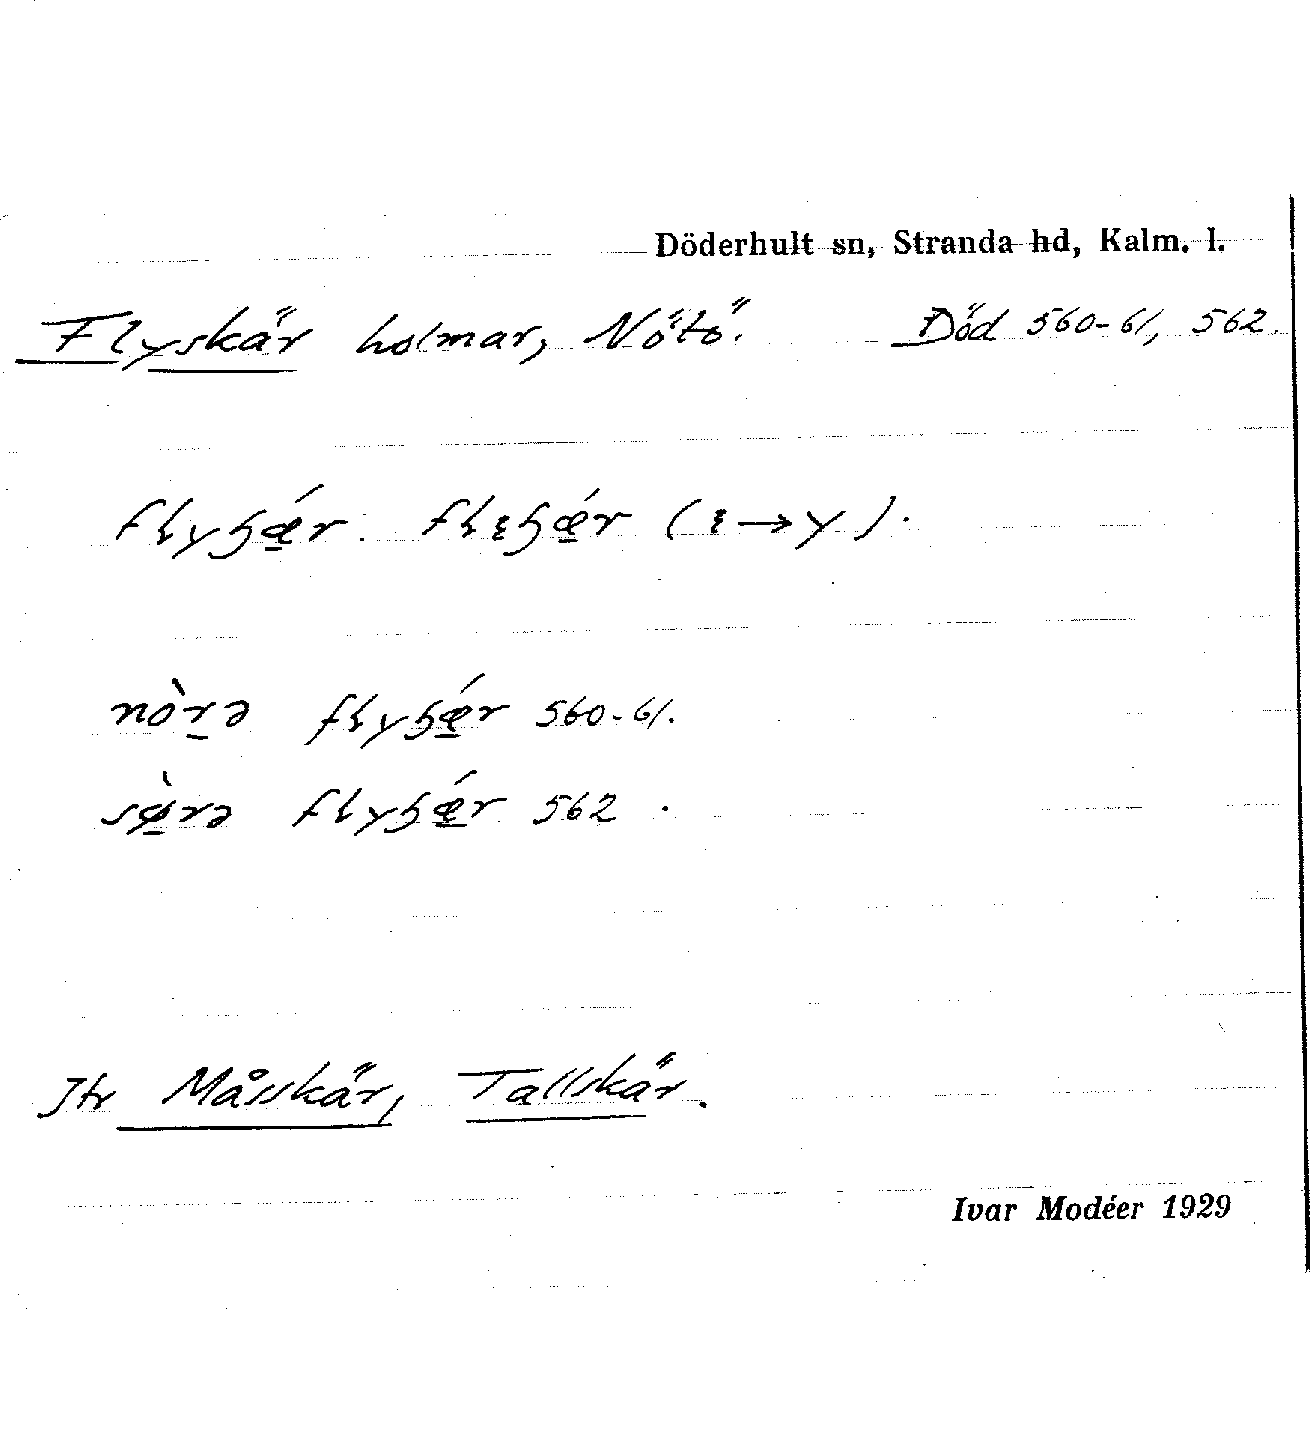 Döderhult sn, Stranda hd, Kalm. l.
Flyskär holmar, Nötö. Död 560-61, 562.
flyɧǽ̲r. flꜫɧǽ̲r (ꜫ→y).
nòr̲ə flyɧǽ̲r 560-61.
sø̲̀rə flyɧǽ̲r 562.
Jfr Måsskär, Tallskär.
Ivar Modéer 1929